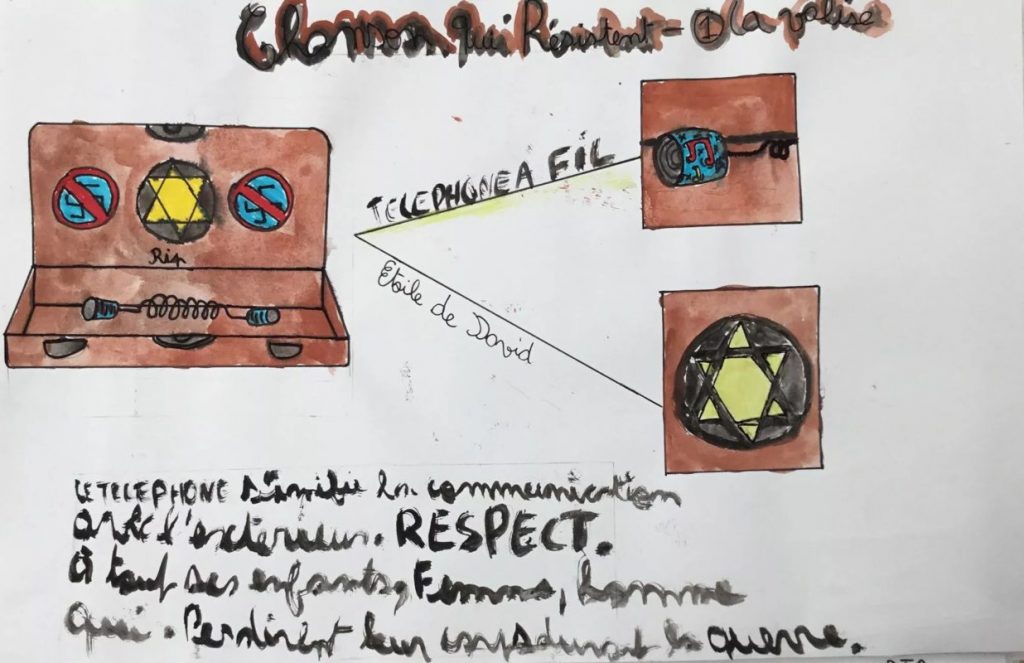 Chanson qui Résistent - ① la valise
TELEPHONE A FIL
Rip
Etoile de David
LE TELEPHONE la communication
avec l'extérieur. RESPECT.
à tout ses enfants, Femme, homme
qui. Perdirent leur corps durant la guerre.